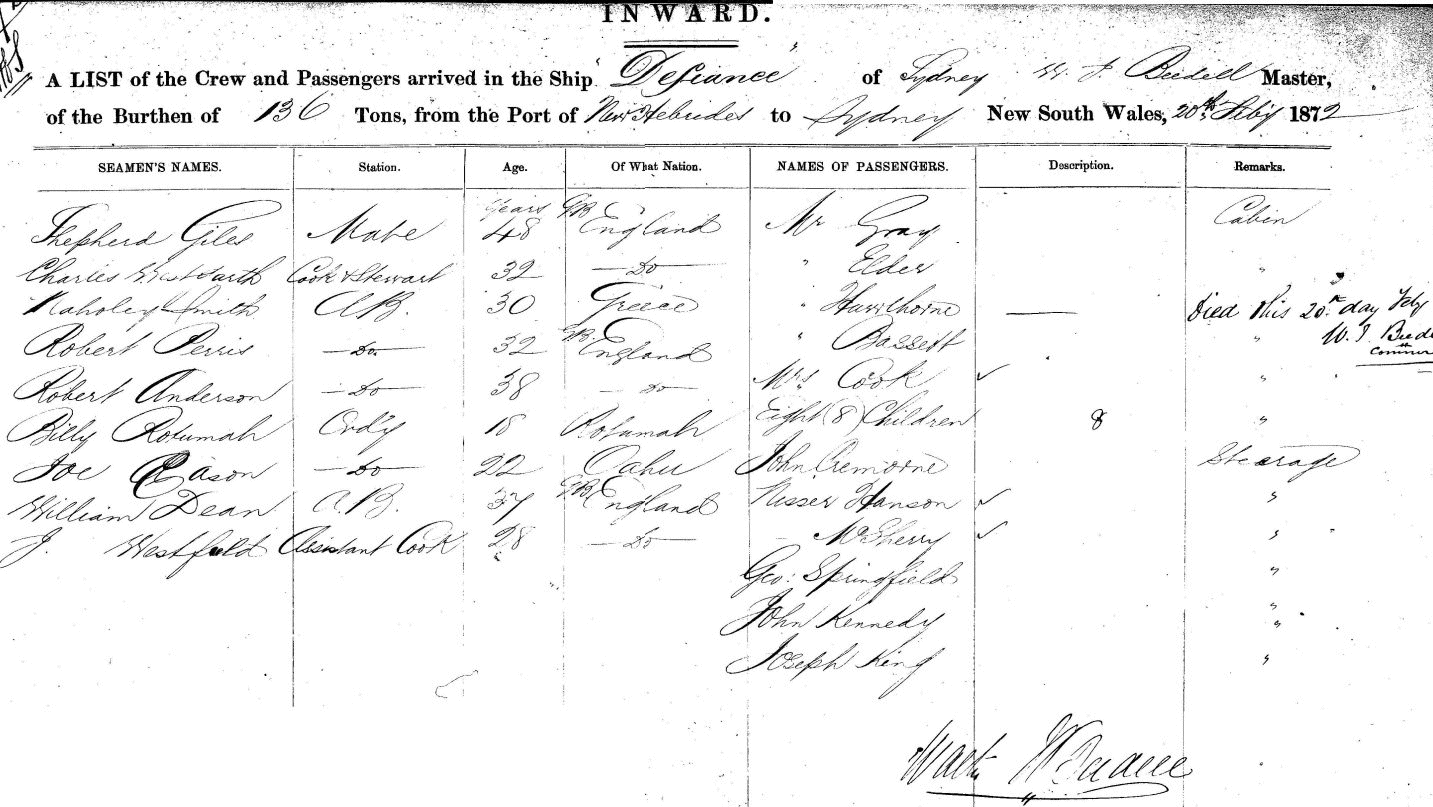 INWARD.
A LIST of the Crew and Passengers arrived in the Ship Defiance of Sydney W. J. Beedell Master,
of the Burthen of 136 Tons, from the Port of New Hebrides to Sydney New South Wales, 20th Feb'y 1872
SEAMEN'S NAMES. Station. Age. Of What Nation. NAMES OF PASSENGERS. Description. Remarks.
Shepherd Giles Mate Years 48 GB England Mr Gray Cabin
Charles Cook & Stewart 32 - Do - " Elder "
Smith A.B. 30 Greece " Hawthorne — Died this 20th day Feby
Robert Perris - Do - 32 GB England " Bassett " W. J.
Robert Anderson - Do - 38 - Do - Mrs Cook ✓ "
Billy Rotumah Ord'y 18 Rotumah Eight (8) Children 8 "
Joe - Do - 22 Oahu John Cremorne Steerage
William Dean A.B. 37 GB England Nisser Hanson ✓ "
J. Westfield Assistant Cook 28 - Do - — McSherry ✓ "
Geo: Springfield "
John Kennedy "
Joseph King "